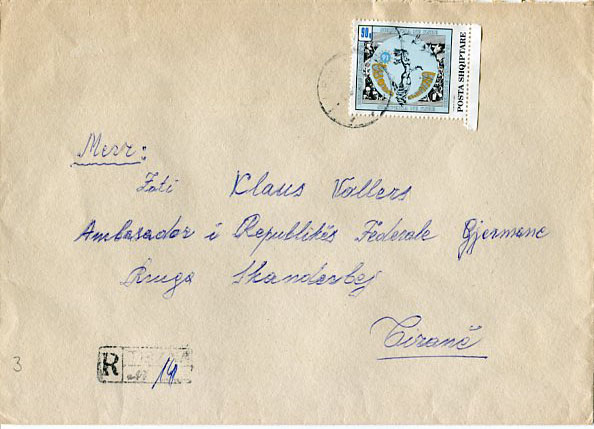 90 q
POSTA SHQIPTARE
Merr:
Zoti Klaus Vallers
Ambasador i Republikës Federale Gjermane
Rruga Skanderbej
Tiranë
R
14
3